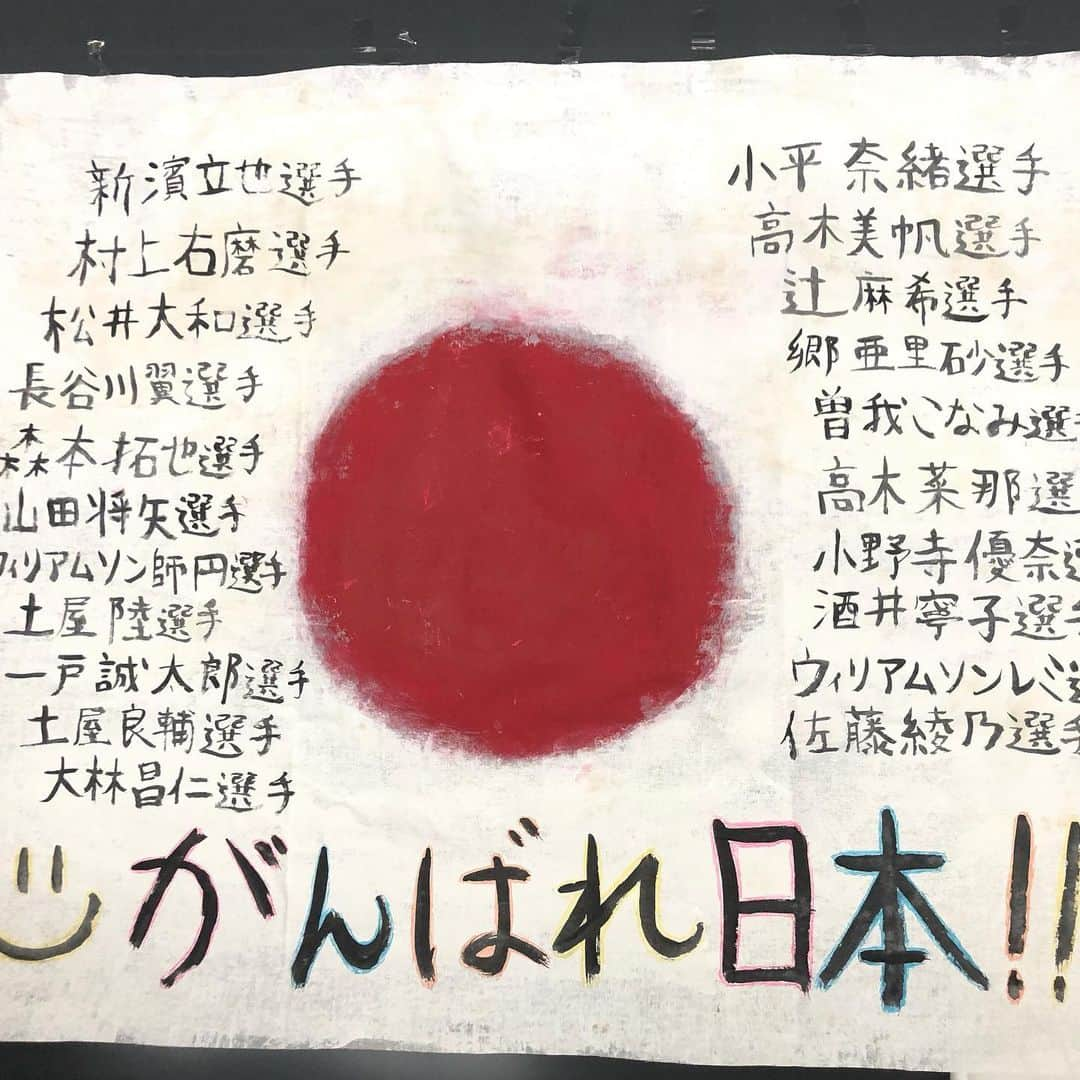 新濱立也選手
村上右磨選手
松井大和選手
長谷川翼選手
森本拓也選手
山田将矢選手
ウィリアムソン師円選手
土屋陸選手
一戸誠太郎選手
土屋良輔選手
大林昌仁選手
小平奈緒選手
高木美帆選手
辻麻希選手
郷亜里砂選手
曽我こなみ選手
高木菜那選
小野寺優奈選
酒井寧子選手
ウィリアムソンレミ選
佐藤綾乃選手
がんばれ日本!!